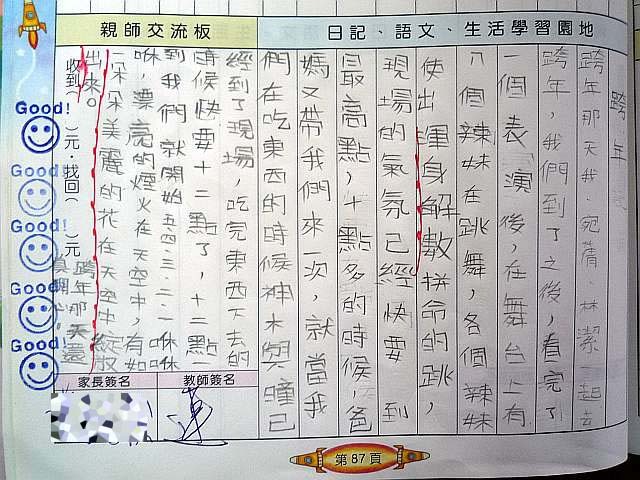 親師交流板
日記、語文、生活學習園地
跨年
跨年那天我、宛蒨、林潔一起去
跨年，我們到了之後，看完了
一個表演後，在舞台上有
八個辣妹在跳舞，各個辣妹
使出渾身解數拼命的跳，
現場的氣氛已經快要到
最高點，十點多的時候，爸
媽又帶我們來一次，就當我
們在吃東西的時候神木與瞳已
經到了現場，吃完東西下去的
時候快要十二點了，十二點
到我們就開始五、四、三、二、一咻咻
咻，漂亮的煙火在天空中，有如
一朵朵美麗的花在天空中綻放
出來。
跨年那天還
真開心。
收到( )元，找回( )元
Good!
Good!
Good!
Good!
Good!
家長簽名
教師簽名
第87頁